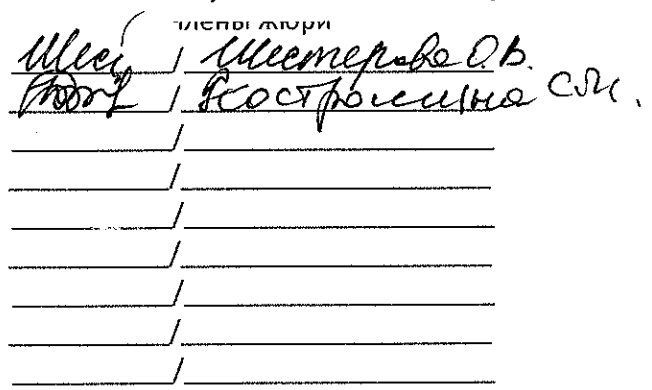 члены жюри
/ Шестерова О.В.
/ Костромина С.М.